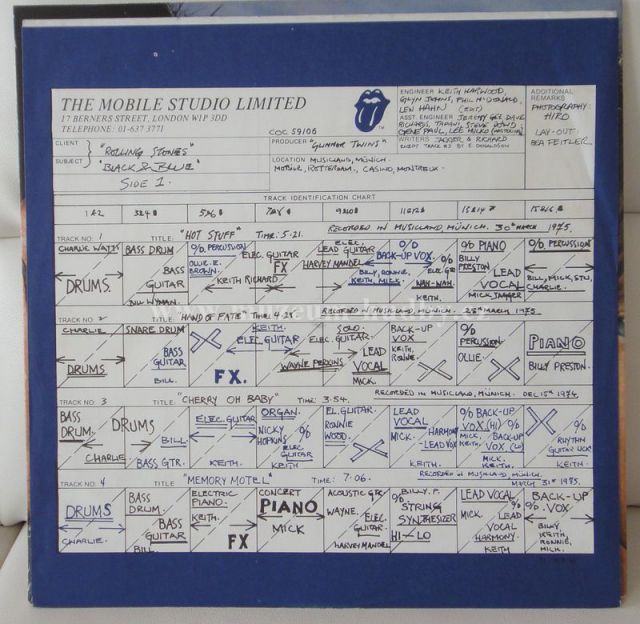 THE MOBILE STUDIO LIMITED
17 BERNERS STREET, LONDON W1P 3DD
TELEPHONE: 01-637 3771
COC 59106
ENGINEER KEITH HARWOOD,
GLYN JOHNS, PHIL McDONALD,
LEW HAHN
ASST ENGINEER JEREMY GEE DAVE
RICHARDS, TAPANI,
GENE PAUL, LEE HULKO
WRITERS JAGGER & RICHARD
EXCEPT TRACK #3 BY E. DONALDSON
ADDITIONAL
REMARKS
PHOTOGRAPHY:
HIRO
LAY-OUT:
BEA FEITLER
CLIENT "ROLLING STONES"
SUBJECT "BLACK & BLUE"
SIDE 1.
PRODUCER "GLIMMER TWINS"
LOCATION MUSICLAND, MÜNICH.
MOBILE, ROTTERDAM. CASINO, MONTREUX
TRACK IDENTIFICATION CHART
1 & 2 3 & 4 5 & 6 7 & 8 9 & 10 11 & 12 13 & 14 15 & 16
TRACK NO. 1 TITLE "HOT STUFF" TIME: 5.21. RECORDED IN MUSICLAND, MÜNICH. 30th MARCH 1975.
CHARLIE WATTS
DRUMS.
BASS DRUM
BASS
GUITAR
BILL WYMAN.
% PERCUSSION
OLLIE E.
BROWN.
ELEC. GUITAR
FX
KEITH RICHARD
ELEC.
LEAD GUITAR
HARVEY MANDEL
O/D
BACK-UP VOX.
BILLY, RONNIE,
KEITH, MICK.
ELEC. GTR
WAH-WAH
KEITH.
% PIANO
BILLY
PRESTON
LEAD
VOCAL
MICK JAGGER
% PERCUSSION
BILL, MICK, STU,
CHARLIE.
TRACK NO. 2 TITLE "HAND OF FATE" TIME: 4.28. RECORDED IN MUSICLAND, MÜNICH. MARCH 1975.
CHARLIE
DRUMS
SNARE DRUM
BASS
GUITAR
BILL.
KEITH.
ELEC. GUITAR
FX.
SOLO.
ELEC. GUITAR.
WAYNE PERKINS
LEAD
VOCAL
MICK.
BACK-UP
VOX
KEITH,
RONNIE.
%
PERCUSION
OLLIE
PIANO
BILLY PRESTON.
TRACK NO. 3 TITLE "CHERRY OH BABY" TIME: 3.54. RECORDED IN MUSICLAND, MÜNICH. DEC 15th 1974.
BASS
DRUM.
DRUMS
CHARLIE
BILL
BASS GTR.
ELEC. GUITAR
KEITH.
ORGAN.
NICKY
HOPKINS
%
ELEC
GUITAR
KEITH
EL. GUITAR
RONNIE
WOOD.
LEAD
VOCAL
MICK.
HARMONY
-LEAD VOX
KEITH.
% BACK-UP
VOX (HI) %
MICK, BACK-UP
KEITH. VOX (LO)
MICK.
KEITH.
%
RHYTHM
GUITAR
KEITH
TRACK NO. 4 TITLE "MEMORY MOTEL" TIME: 7.06. RECORDED IN MUSICLAND MÜNICH. MARCH 31st 1975.
DRUMS
CHARLIE.
BASS
DRUM.
BASS
GUITAR
BILL
ELECTRIC
PIANO.
KEITH.
FX
CONCERT
PIANO
MICK
ACOUSTIC GTR.
WAYNE.
ELEC.
GUITAR.
HARVEY MANDEL
BILLY. P.
%
STRING
SYNTHESIZER
HI—LO
LEAD VOCAL
MICK. %
LEAD
VOCAL
HARMONY.
KEITH
BACK-UP
%. VOX.
BILLY,
KEITH,
RONNIE,
MICK.